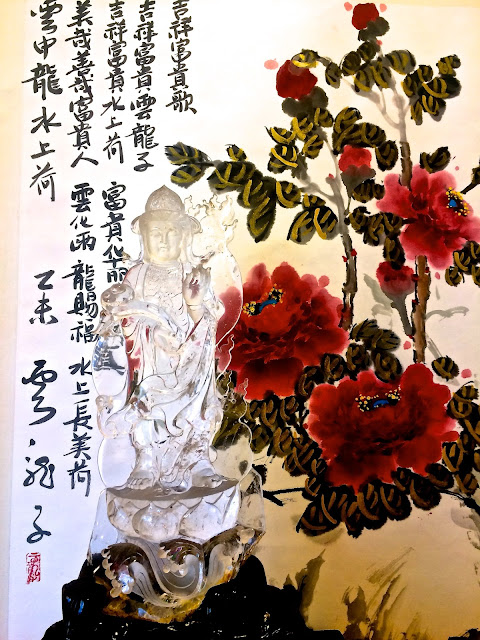 吉祥富貴歌
吉祥富貴雲龍子
吉祥富貴水上荷 富貴华丽
美哉善哉富貴人 雲化雨 龍賜福 水上長美荷
雲中龍水上荷
乙未 雲龍子